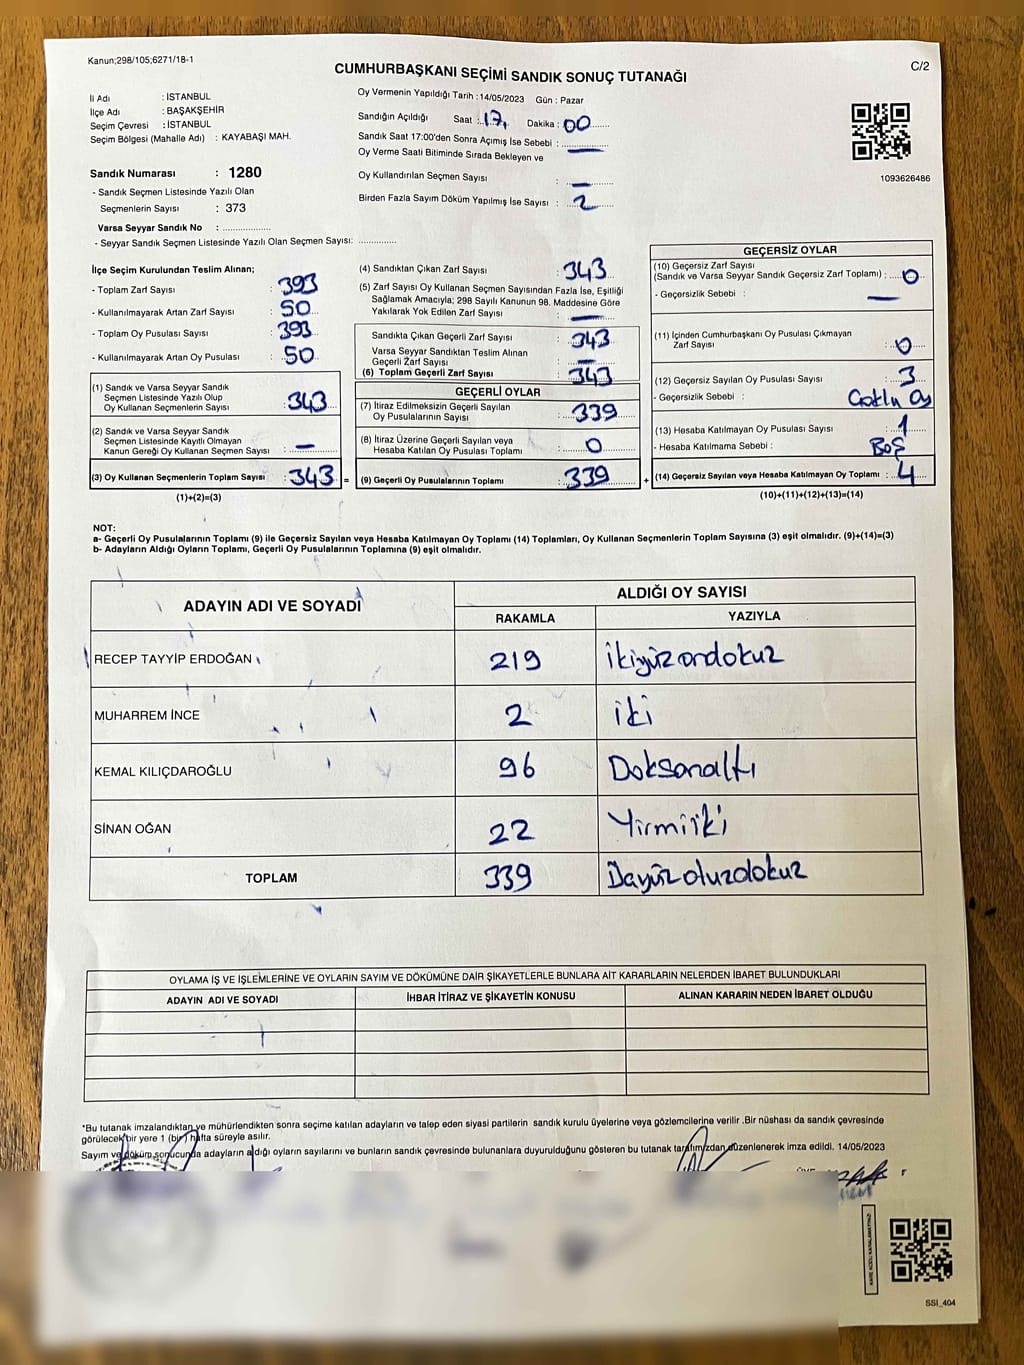 Kanun;298/105;6271/18-1
CUMHURBAŞKANI SEÇİMİ SANDIK SONUÇ TUTANAĞI
C/2
İl Adı : İSTANBUL
İlçe Adı : BAŞAKŞEHİR
Seçim Çevresi : İSTANBUL
Seçim Bölgesi (Mahalle Adı) : KAYABAŞI MAH.
Sandık Numarası : 1280
- Sandık Seçmen Listesinde Yazılı Olan
Seçmenlerin Sayısı : 373
Varsa Seyyar Sandık No : ..............
- Seyyar Sandık Seçmen Listesinde Yazılı Olan Seçmen Sayısı: ............
Oy Vermenin Yapıldığı Tarih : 14/05/2023 Gün : Pazar
Sandığın Açıldığı Saat : 17, Dakika : 00
Sandık Saat 17:00'den Sonra Açımış İse Sebebi : —
Oy Verme Saati Bitiminde Sırada Bekleyen ve
Oy Kullandırılan Seçmen Sayısı : —
Birden Fazla Sayım Döküm Yapılmış İse Sayısı : 2
1093626486
İlçe Seçim Kurulundan Teslim Alınan;
- Toplam Zarf Sayısı : 393
- Kullanılmayarak Artan Zarf Sayısı : 50
- Toplam Oy Pusulası Sayısı : 393
- Kullanılmayarak Artan Oy Pusulası : 50
(1) Sandık ve Varsa Seyyar Sandık
Seçmen Listesinde Yazılı Olup
Oy Kullanan Seçmenlerin Sayısı : 343
(2) Sandık ve Varsa Seyyar Sandık
Seçmen Listesinde Kayıtlı Olmayan
Kanun Gereği Oy Kullanan Seçmen Sayısı : —
(3) Oy Kullanan Seçmenlerin Toplam Sayısı : 343 =
(1)+(2)=(3)
(4) Sandıktan Çıkan Zarf Sayısı : 343
(5) Zarf Sayısı Oy Kullanan Seçmen Sayısından Fazla İse, Eşitliği
Sağlamak Amacıyla; 298 Sayılı Kanunun 98. Maddesine Göre
Yakılarak Yok Edilen Zarf Sayısı : —
Sandıkta Çıkan Geçerli Zarf Sayısı : 343
Varsa Seyyar Sandıktan Teslim Alınan
Geçerli Zarf Sayısı : —
(6) Toplam Geçerli Zarf Sayısı : 343
GEÇERLİ OYLAR
(7) İtiraz Edilmeksizin Geçerli Sayılan
Oy Pusulalarının Sayısı : 339
(8) İtiraz Üzerine Geçerli Sayılan veya
Hesaba Katılan Oy Pusulaları Toplamı : 0
(9) Geçerli Oy Pusulalarının Toplamı : 339 +
GEÇERSİZ OYLAR
(10) Geçersiz Zarf Sayısı
(Sandık ve Varsa Seyyar Sandık Geçersiz Zarf Toplamı) : 0
- Geçersizlik Sebebi : —
(11) İçinden Cumhurbaşkanı Oy Pusulası Çıkmayan
Zarf Sayısı : 0
(12) Geçersiz Sayılan Oy Pusulası Sayısı : 3
- Geçersizlik Sebebi : Çoklu Oy
(13) Hesaba Katılmayan Oy Pusulası Sayısı : 1
- Hesaba Katılmama Sebebi : Boş
(14) Geçersiz Sayılan veya Hesaba Katılmayan Oy Toplamı : 4
(10)+(11)+(12)+(13)=(14)
NOT:
a- Geçerli Oy Pusulalarının Toplamı (9) ile Geçersiz Sayılan veya Hesaba Katılmayan Oy Toplamı (14) Toplamları, Oy Kullanan Seçmenlerin Toplam Sayısına (3) eşit olmalıdır. (9)+(14)=(3)
b- Adayların Aldığı Oyların Toplamı, Geçerli Oy Pusulalarının Toplamına (9) eşit olmalıdır.
ADAYIN ADI VE SOYADI
ALDIĞI OY SAYISI
RAKAMLA YAZIYLA
RECEP TAYYİP ERDOĞAN 219 ikiyüzondokuz
MUHARREM İNCE 2 iki
KEMAL KILIÇDAROĞLU 96 Doksanaltı
SİNAN OĞAN 22 Yirmiiki
TOPLAM 339 Üçyüzotuzdokuz
OYLAMA İŞ VE İŞLEMLERİNE VE OYLARIN SAYIM VE DÖKÜMÜNE DAİR ŞİKAYETLERLE BUNLARA AİT KARARLARIN NELERDEN İBARET BULUNDUKLARI
ADAYIN ADI VE SOYADI İHBAR İTİRAZ VE ŞİKAYETİN KONUSU ALINAN KARARIN NEDEN İBARET OLDUĞU
*Bu tutanak imzalandıktan ve mühürlendikten sonra seçime katılan adayların ve talep eden siyasi partilerin sandık kurulu üyelerine veya gözlemcilerine verilir .Bir nüshası da sandık çevresinde
görülecek bir yere 1 (bir) hafta süreyle asılır.
Sayım ve döküm sonucunda adayların aldığı oyların sayılarını ve bunların sandık çevresinde bulunanlara duyurulduğunu gösteren bu tutanak tarafımızdan düzenlenerek imza edildi. 14/05/2023
SSI_404